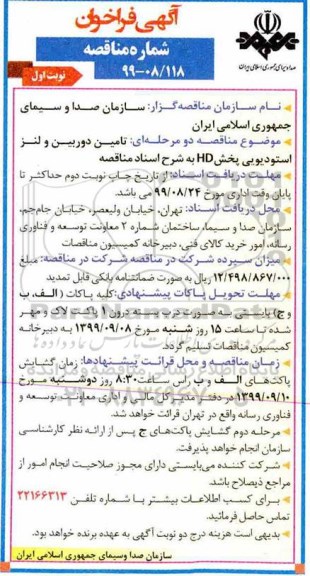 آگهی فراخوان
شماره مناقصه
۹۹-۰۸/۱۱۸
صدا و سیمای جمهوری اسلامی ایران
نوبت اول
نام سازمان مناقصه‌گزار: سازمان صدا و سیمای
جمهوری اسلامی ایران
موضوع مناقصه دو مرحله‌ای: تامین دوربین و لنز
استودیویی پخش HD به شرح اسناد مناقصه
مهلت دریافت اسناد: از تاریخ چاپ نوبت دوم حداکثر تا
پایان وقت اداری مورخ ۹۹/۰۸/۲۴ می باشد.
محل دریافت اسناد: تهران، خیابان ولیعصر، خیابان جام‌جم،
سازمان صدا و سیما، ساختمان شماره ۲ معاونت توسعه و فناوری
رسانه، امور خرید کالای فنی، دبیرخانه کمیسیون مناقصات
میزان سپرده شرکت در مناقصه شرکت در مناقصه: مبلغ
۱۲/۴۹۸/۸۶۷/۰۰۰ ریال به صورت ضمانتنامه بانکی قابل تمدید
مهلت تحویل پاکات پیشنهادی: کلیه پاکات (الف، ب
و ج) بایستی به صورت دربسته درون ۱ پاکت لاک و مهر
شده تا ساعت ۱۵ روز شنبه مورخ ۱۳۹۹/۰۹/۰۸ به دبیرخانه
کمیسیون مناقصات تسلیم گردد.
زمان مناقصه و محل قرائت پیشنهادها: زمان گشایش
پاکت‌های الف و ب راس ساعت ۸:۳۰ روز دوشنبه مورخ
۱۳۹۹/۰۹/۱۰ در دفتر مدیرکل مالی و اداری معاونت توسعه و
فناوری رسانه واقع در تهران قرائت خواهد شد.
مرحله دوم گشایش پاکت‌های ج پس از ارائه نظر کارشناسی
سازمان انجام خواهد پذیرفت.
شرکت کننده می‌بایستی دارای مجوز صلاحیت انجام امور از
مراجع ذیصلاح باشد.
برای کسب اطلاعات بیشتر با شماره تلفن ۲۲۱۶۶۳۱۳
تماس حاصل فرمائید.
بدیهی است هزینه درج دو نوبت آگهی به عهده برنده خواهد بود.
سازمان صدا وسیمای جمهوری اسلامی ایران